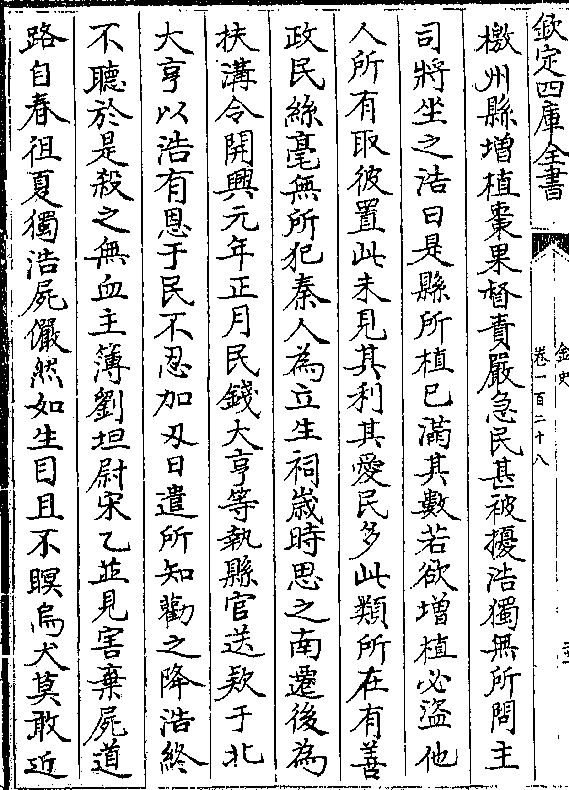 欽定四庫全書
金史
卷一百二十八
檄州縣増植棗果督責嚴急民甚被擾浩獨無所問主
司將坐之浩曰是縣所植已滿其數若欲增植必盜他
人所有取彼置此未見其利其愛民多此類所在有善
政民絲毫無所犯秦人為立生祠歲時思之南遷後為
扶溝令開興元年正月民錢大亨等執縣官送欵于北
大亨以浩有恩于民不忍加刃日遣所知勸之降浩終
不聽於是殺之無血主簿劉坦尉宋乙並見害棄屍道
路自春徂夏獨浩屍儼然如生目且不瞑烏犬莫敢近